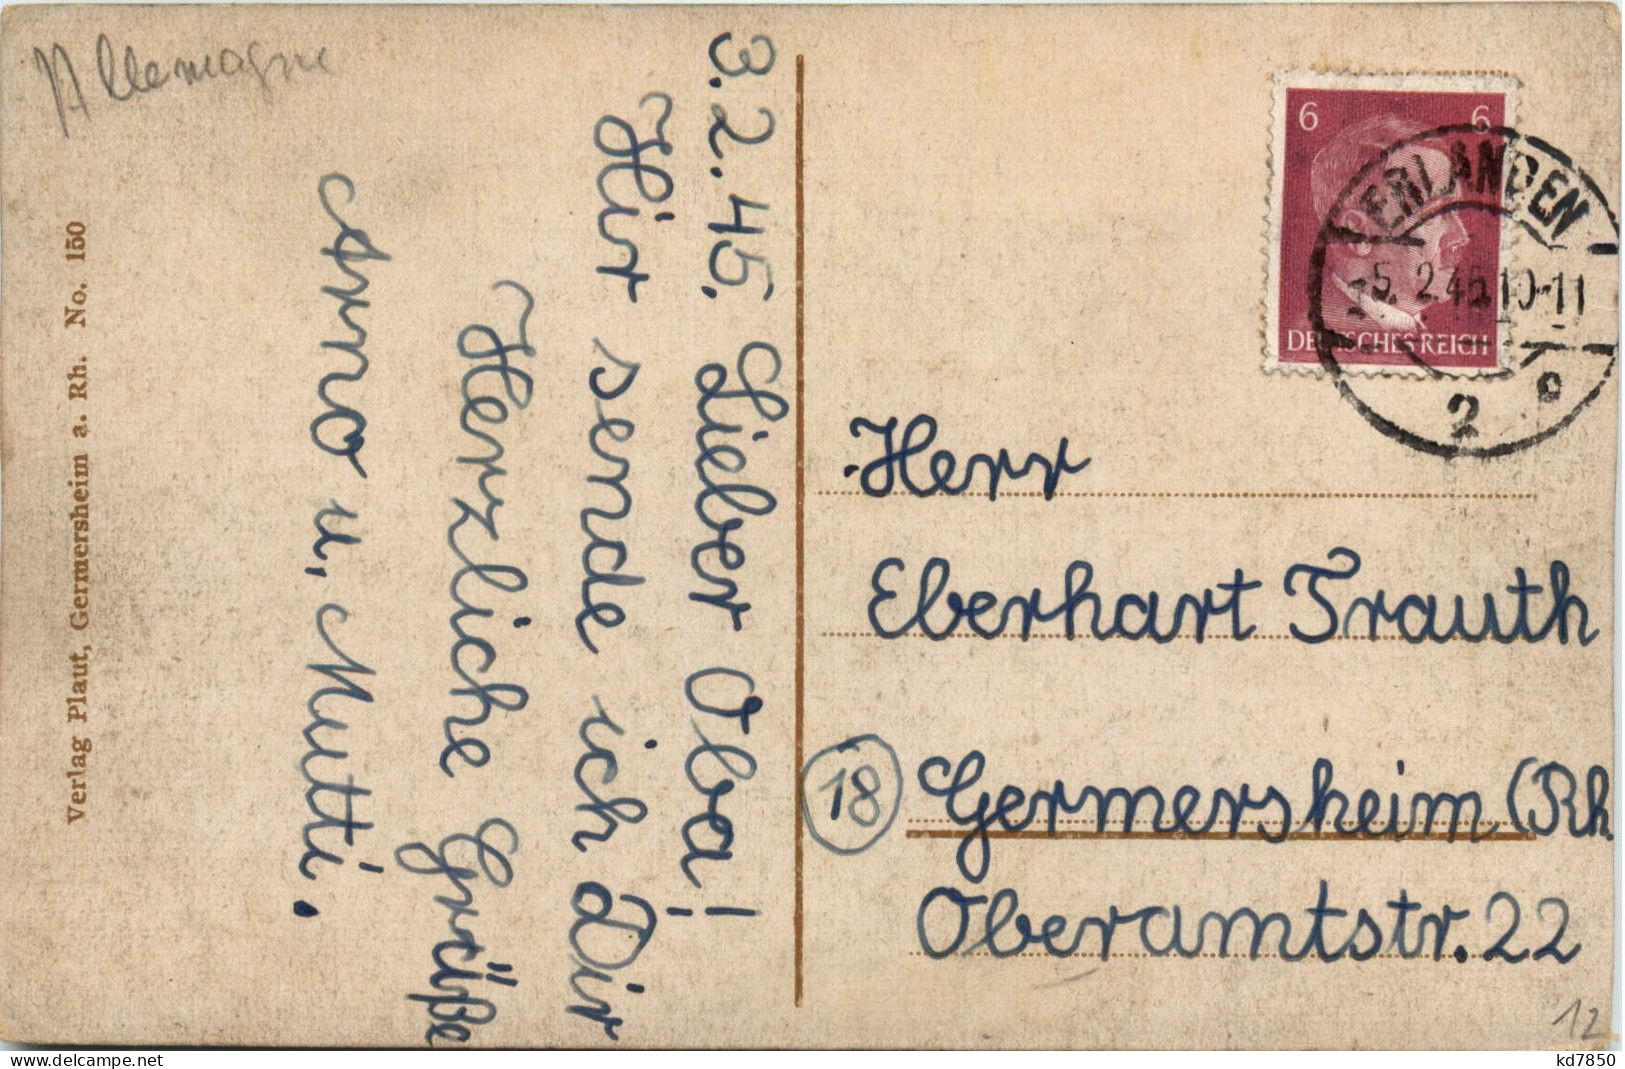 Allemagne
3.2.45. Lieber Oba!
Hir sende ich Dir
Herzliche Grüße
Arno u. Mutti.
Verlag Plaut, Germersheim a. Rh. No. 150
6 6
DEUTSCHES REICH
ERLANGEN
5.2.45.10-11
2 c
Herr
Eberhart Trauth
18 Germersheim (Rh.
Oberamtstr. 22
12
delcampe.net
kd7850